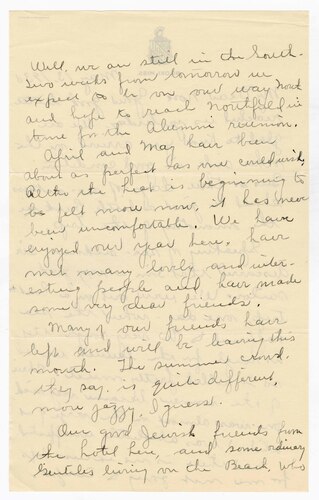 Well, we are still in the South.
Two weeks from tomorrow we
expect to be on our way North
and hope to reach Northfield in
time for the Alumni reunion.
April and May have been
about as perfect as one could wish,
Altho the heat is beginning to
be felt more now, it has never
been uncomfortable. We have
enjoyed our year here, have
met many lovely and inter-
esting people and have made
some very dear friends.
Many of our friends have
left and will be leaving this
month. The summer crowd,
they say, is quite different,
more jazzy, I guess.
Our good Jewish friends from
the hotel here, and some ordinary
Gentiles living on the Beach, who